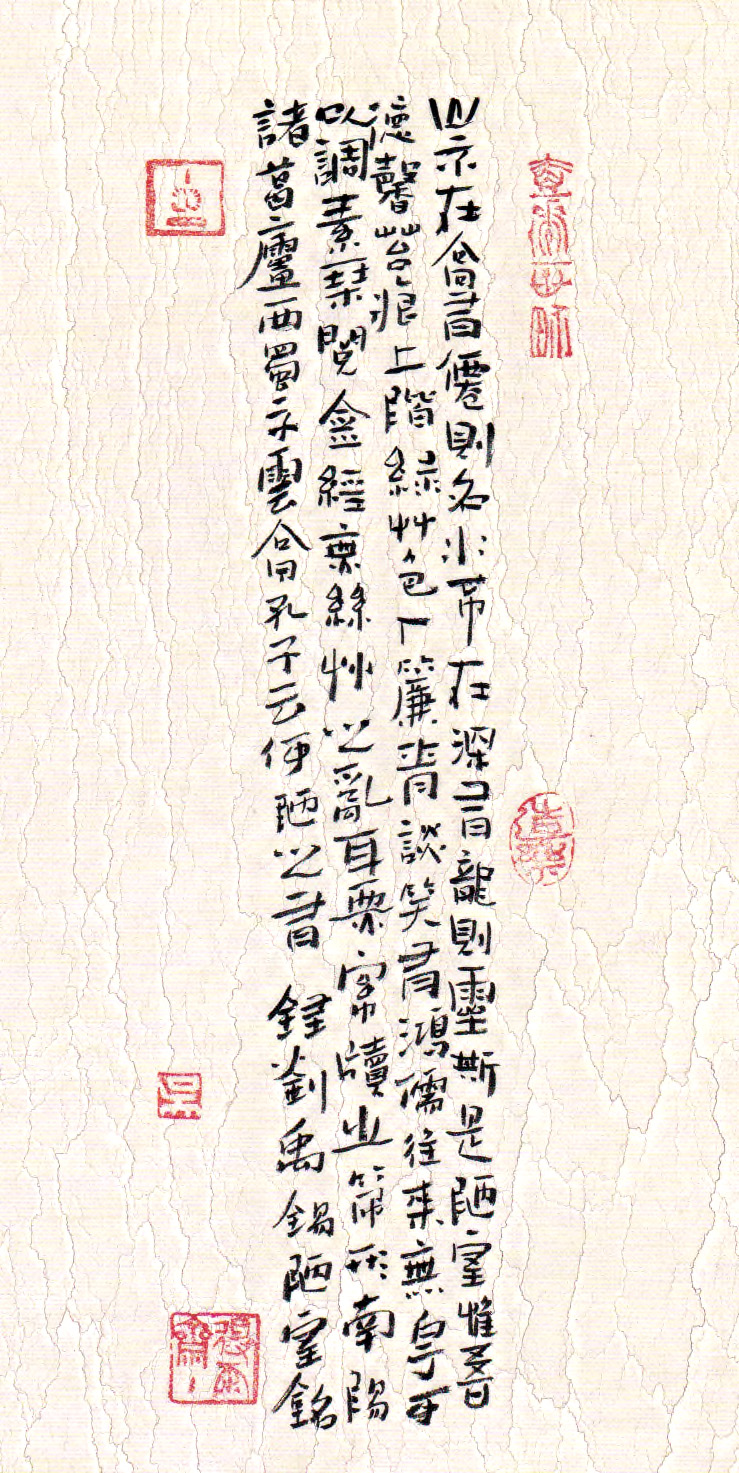 山不在高有僊則名水不在深有龍則靈斯是陋室惟吾
德馨苔痕上階綠艸色入簾青談笑有鴻儒往來無白丁可
以調素琴閱金經無絲竹之亂耳無案牘之勞形南陽
諸葛廬西蜀子雲亭孔子云何陋之有 錄劉禹錫陋室銘